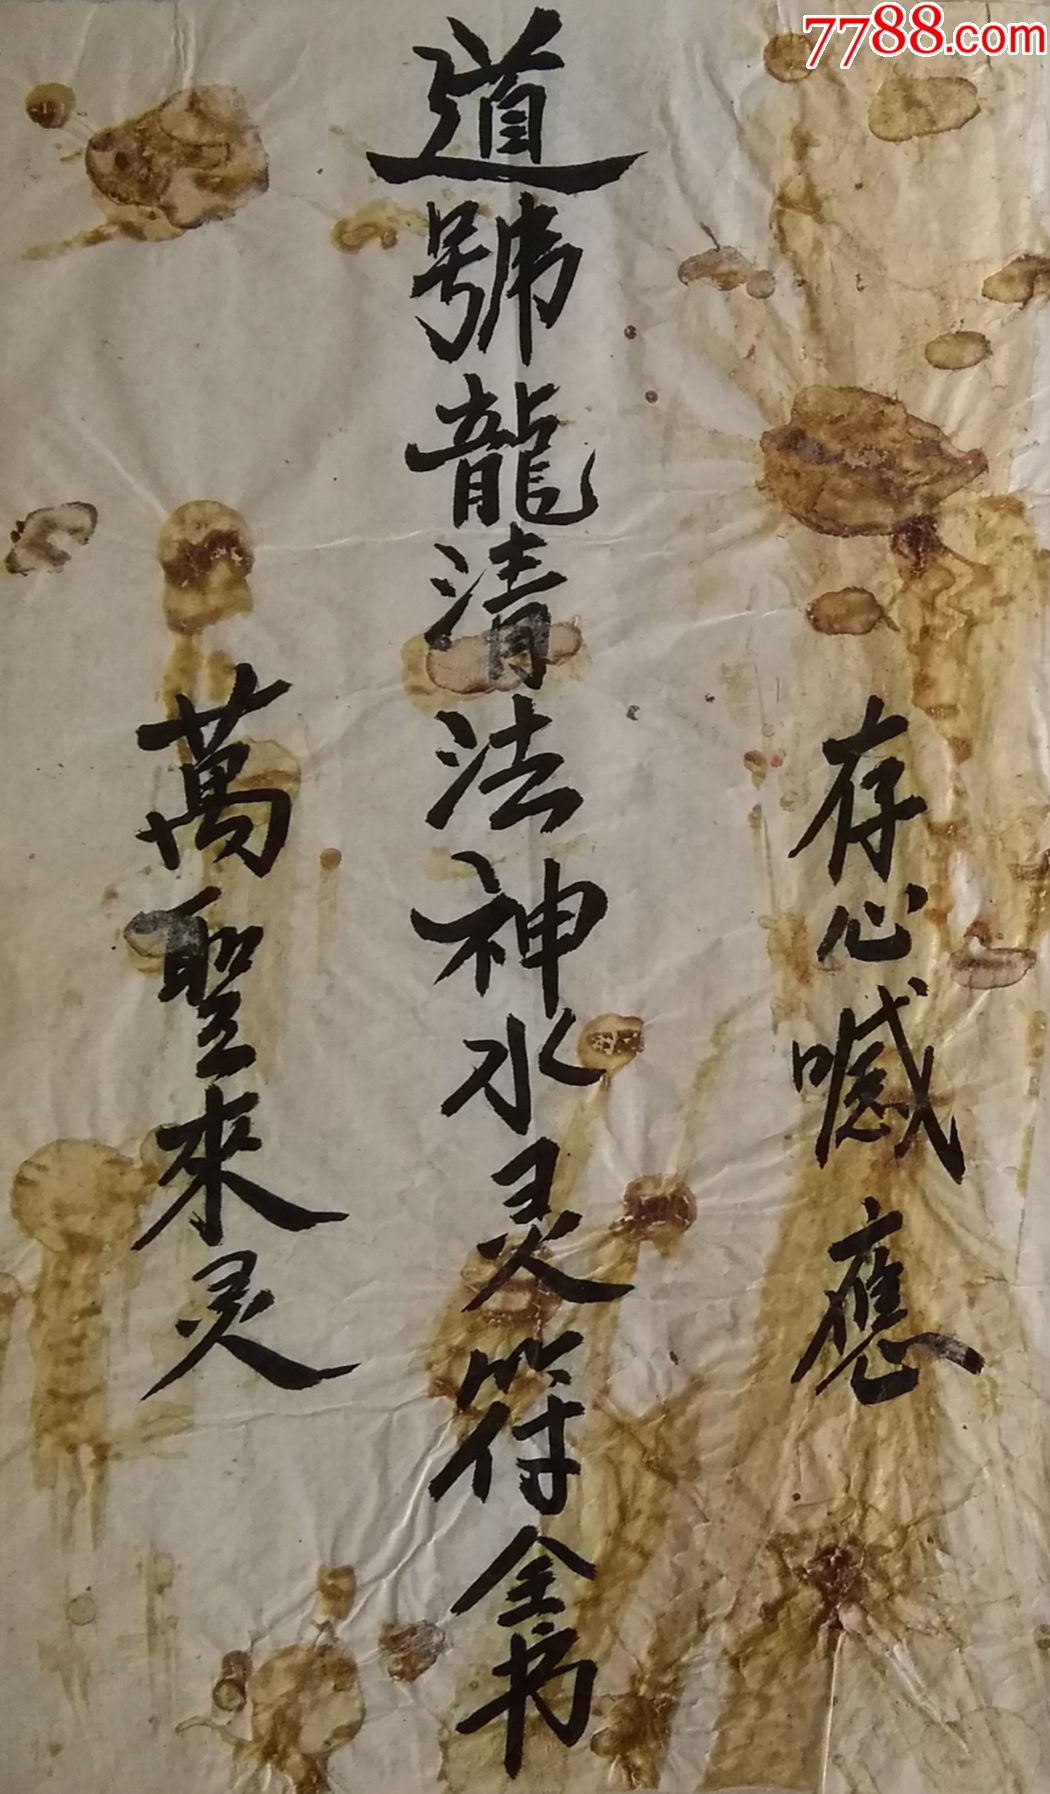 7788.com
存心喊應
道號龍清法神水灵符全书
萬聖來灵